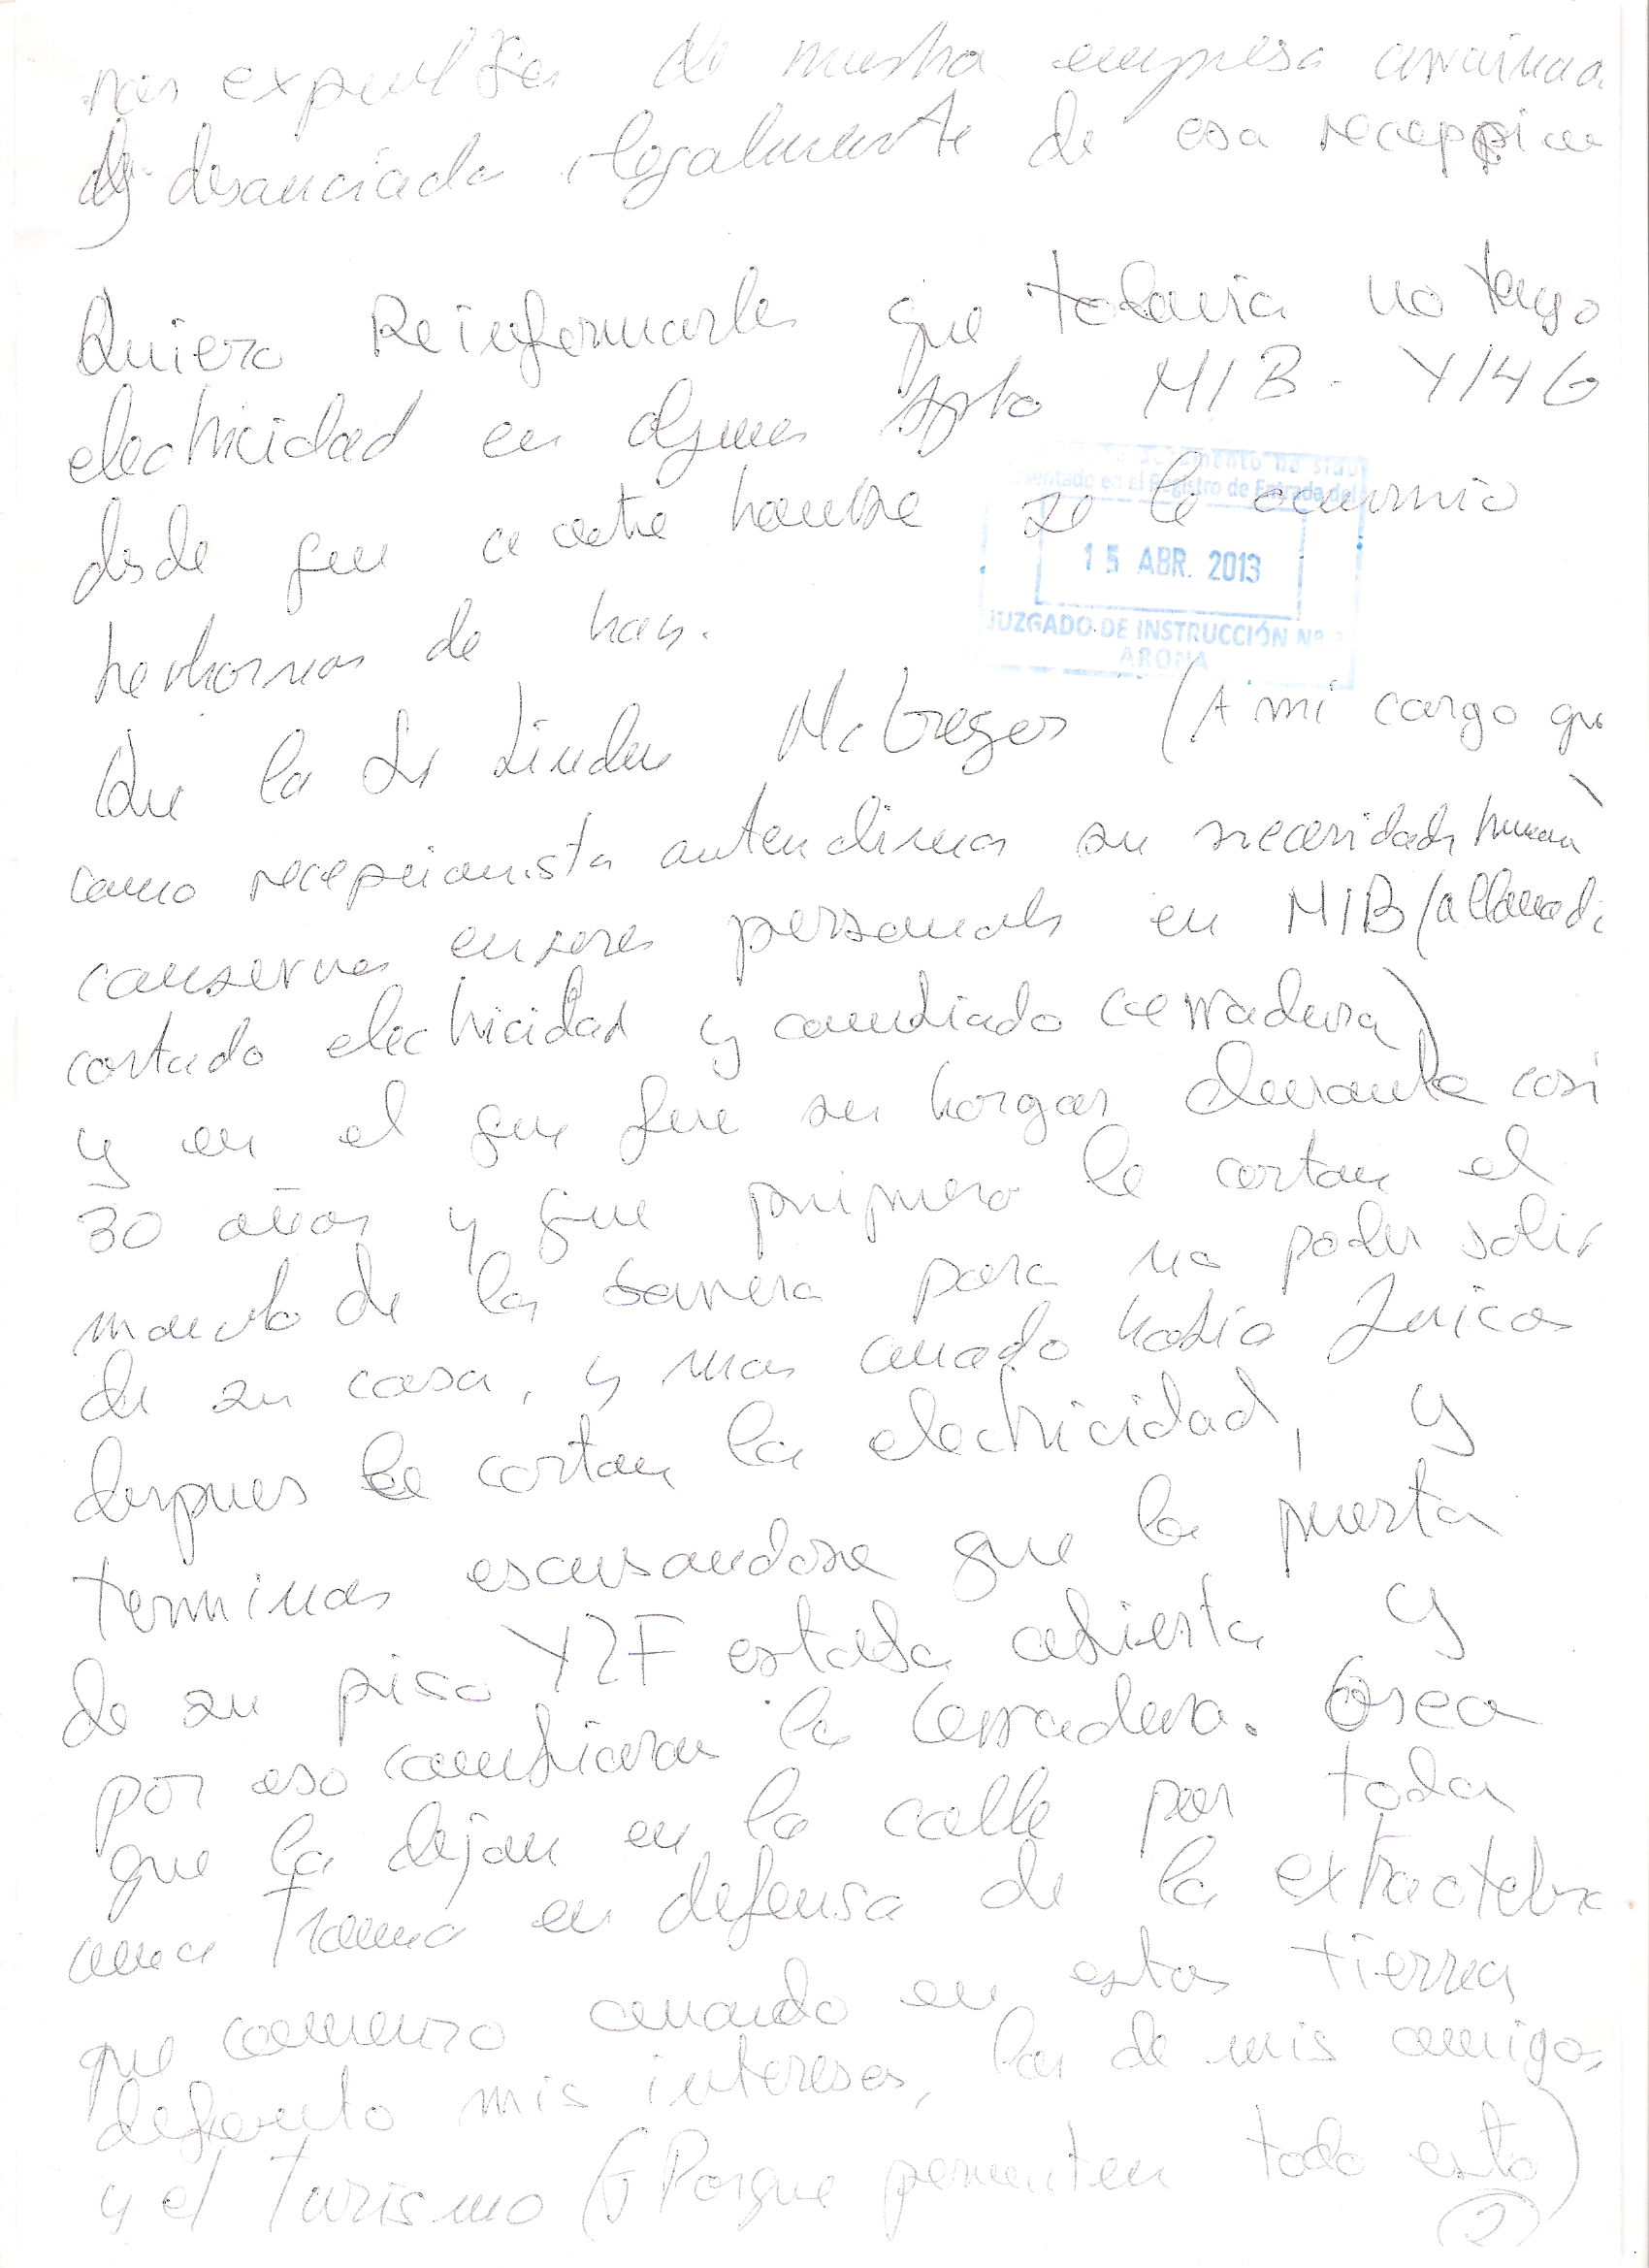 nos expulsan de nuestra empresa arruinada
y desanciada ilegalmente de esa recepcion
Quiero Reinformarles que todavia no tengo
electricidad en algunos Apto M1B - Y14G
desde que a este hombre se le ocurrio
de has.
Que la Sr Linda McGregor (A mi cargo que
como recepcionista antendimos su necesidades humana)
conserva enseres personales en M1B (allanado
cortado electricidad y cambiado cerradura)
y en el que fue su horgar durante casi
30 años y que primero le cortan el
mando de la barrera para no poder salir
de su casa, y mas cuado habia Juicos
despues le cortan la electricidad, y
terminas escusandose que la puerta
de su piso Y2F estaba abierta y
por eso cambiaron la Cerradura. Osea
que la dejan en la calle por toda
una Trama en defensa de la
que comenzo cuando en estas tierras
defiento mis intereses, los de mis amigos,
y el Turismo (¿Porque permiten todo esto)
(2)
documento ha sido
presentado en el Registro de Entrada del
15 ABR. 2013
JUZGADO DE INSTRUCCIÓN Nº
ARONA